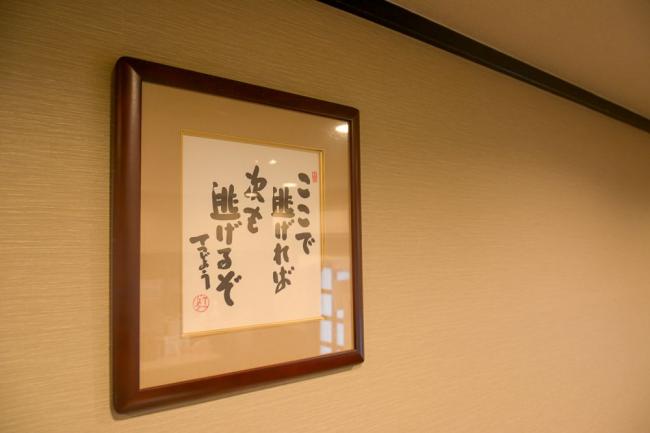 ここで
逃げれば
次も
逃げるぞ
てつどう